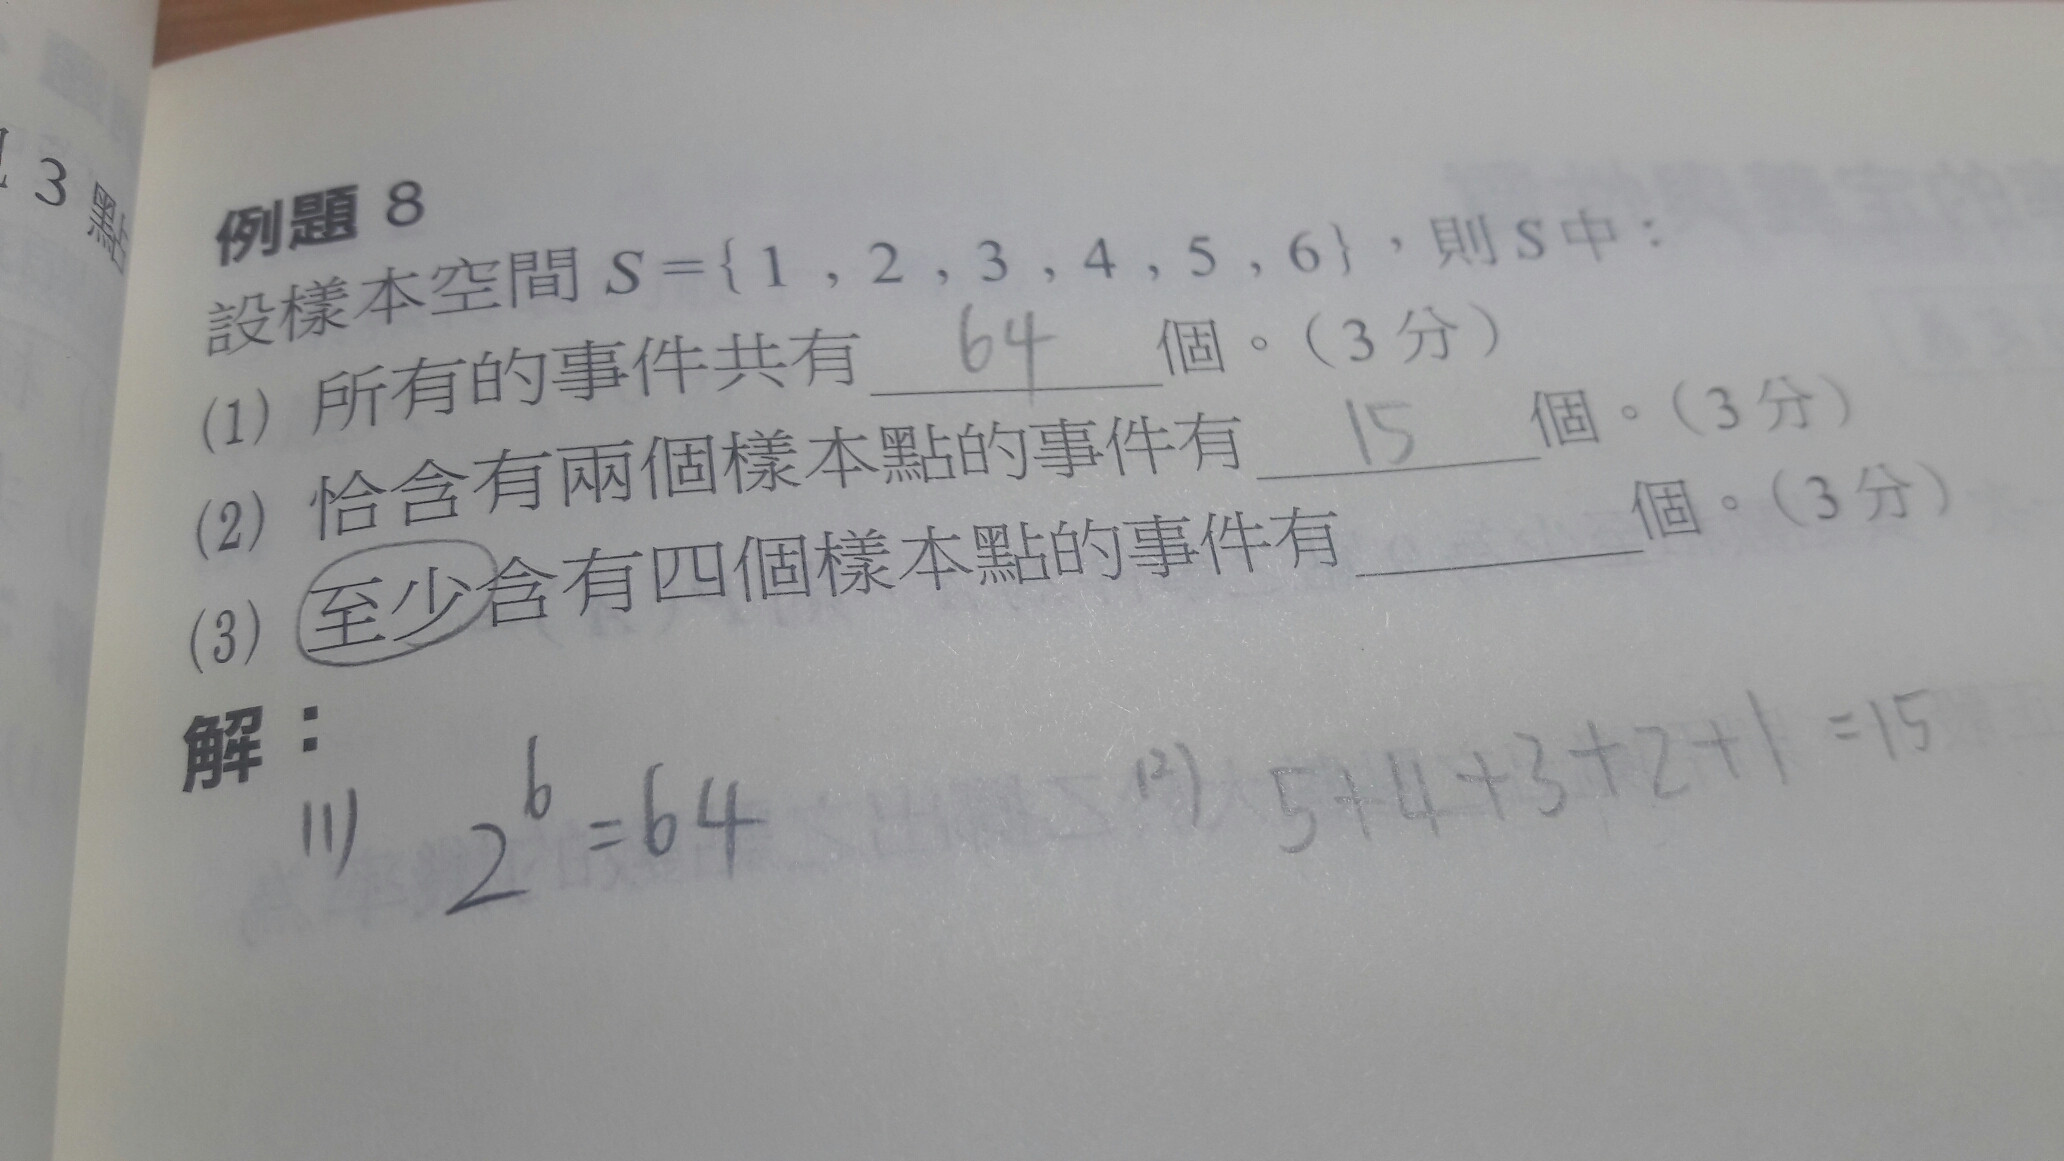 3 點
例題 8
設樣本空間 S={1，2，3，4，5，6}，則 S 中：
(1) 所有的事件共有 64 個。(3 分)
(2) 恰含有兩個樣本點的事件有 15 個。(3 分)
(3) 至少含有四個樣本點的事件有______個。(3 分)
解：
(1) 2⁶=64 (2) 5+4+3+2+1=15